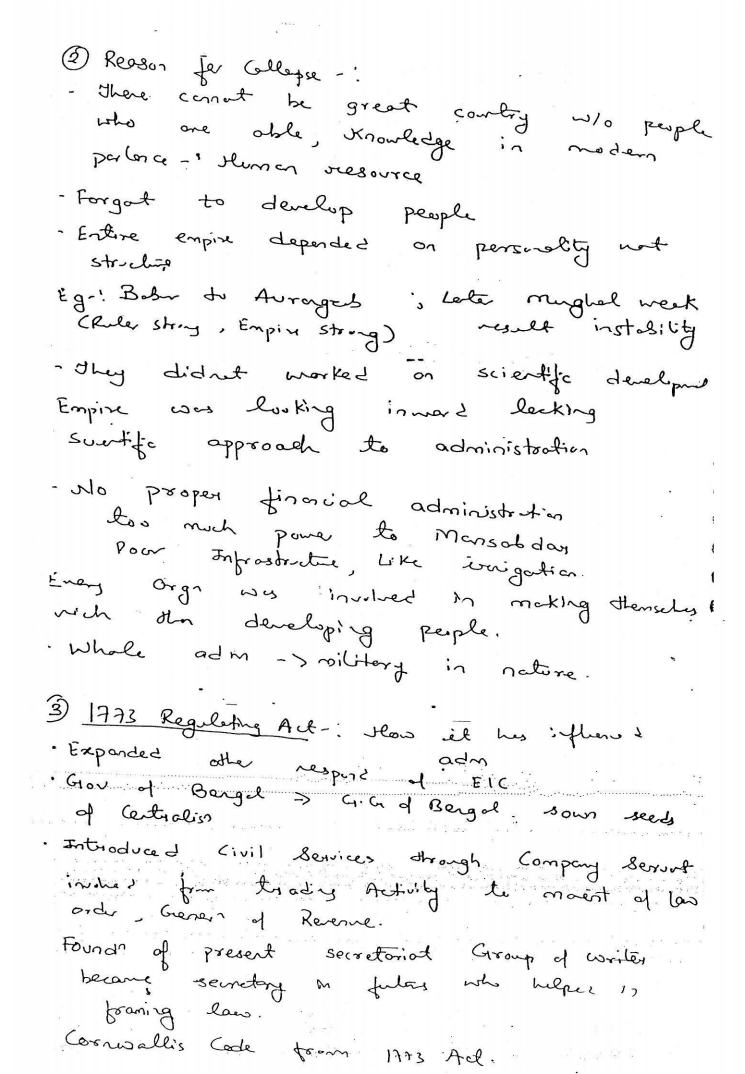 ② Reason for Collapse -:
- There cannot be great country w/o people
who are able, Knowledge in modern
parlance -: Human resource
- Forgot to develop people
- Entire empire depended on personality not
structure
Eg-: Babur to Aurangzeb ; Later Mughal week
(Ruler strong, Empire strong) result instability
- They didnot worked on scientific development
Empire was looking inward lacking
scientific approach to administration
- No proper financial administration
too much power to Mansabdars
Poor Infrastructure, Like irrigation.
Every Orgn was involved in making themselves
rich than developing people.
. Whole adm -> military in nature.
③ 1773 Regulating Act-: How it has influenced
adm
• Expanded the of EIC
• Gov of Bengal => G.G of Bengal. sown seeds
of Centralism
• Introduced Civil Services through Company Servant
involved from trading Activity to maint of law
order, Genern of Revenue.
Foundn of present secretariat Group of writers
became secretary in future who helped in
framing law.
Cornwallis Code from 1773 Act.